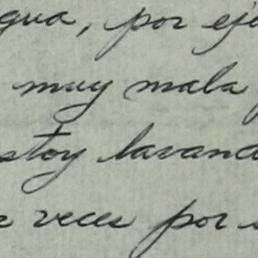 gua, por eje
muy mala
stoy lavand
veces por